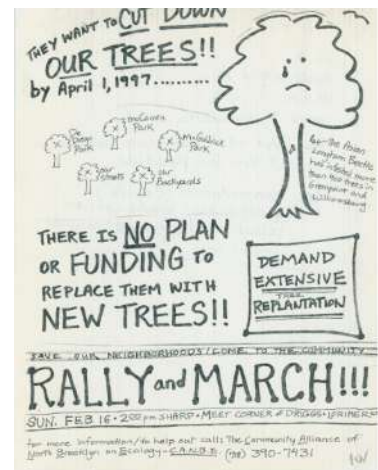 THEY WANT TO CUT DOWN
OUR TREES!!
by April 1, 1997..........
McCarren
Park
Park
McGolrick
Park
our
streets
our
Backyards
The Asian
Longhorn Beetle
has infested more
than 440 trees in
Greenpoint and
Williamsburg
THERE IS NO PLAN
OR FUNDING TO
REPLACE THEM WITH
NEW TREES!!
DEMAND
EXTENSIVE
TREE
REPLANTATION
SAVE OUR NEIGHBORHOODS! COME TO THE COMMUNITY
RALLY and MARCH!!!
SUN. FEB 16 • 2:00 pm SHARP • MEET CORNER of DRIGGS + LORIMER
for more information/to help out call: The Community Alliance of
North Brooklyn on Ecology - C.A.N.B.E. (718) 390-7431